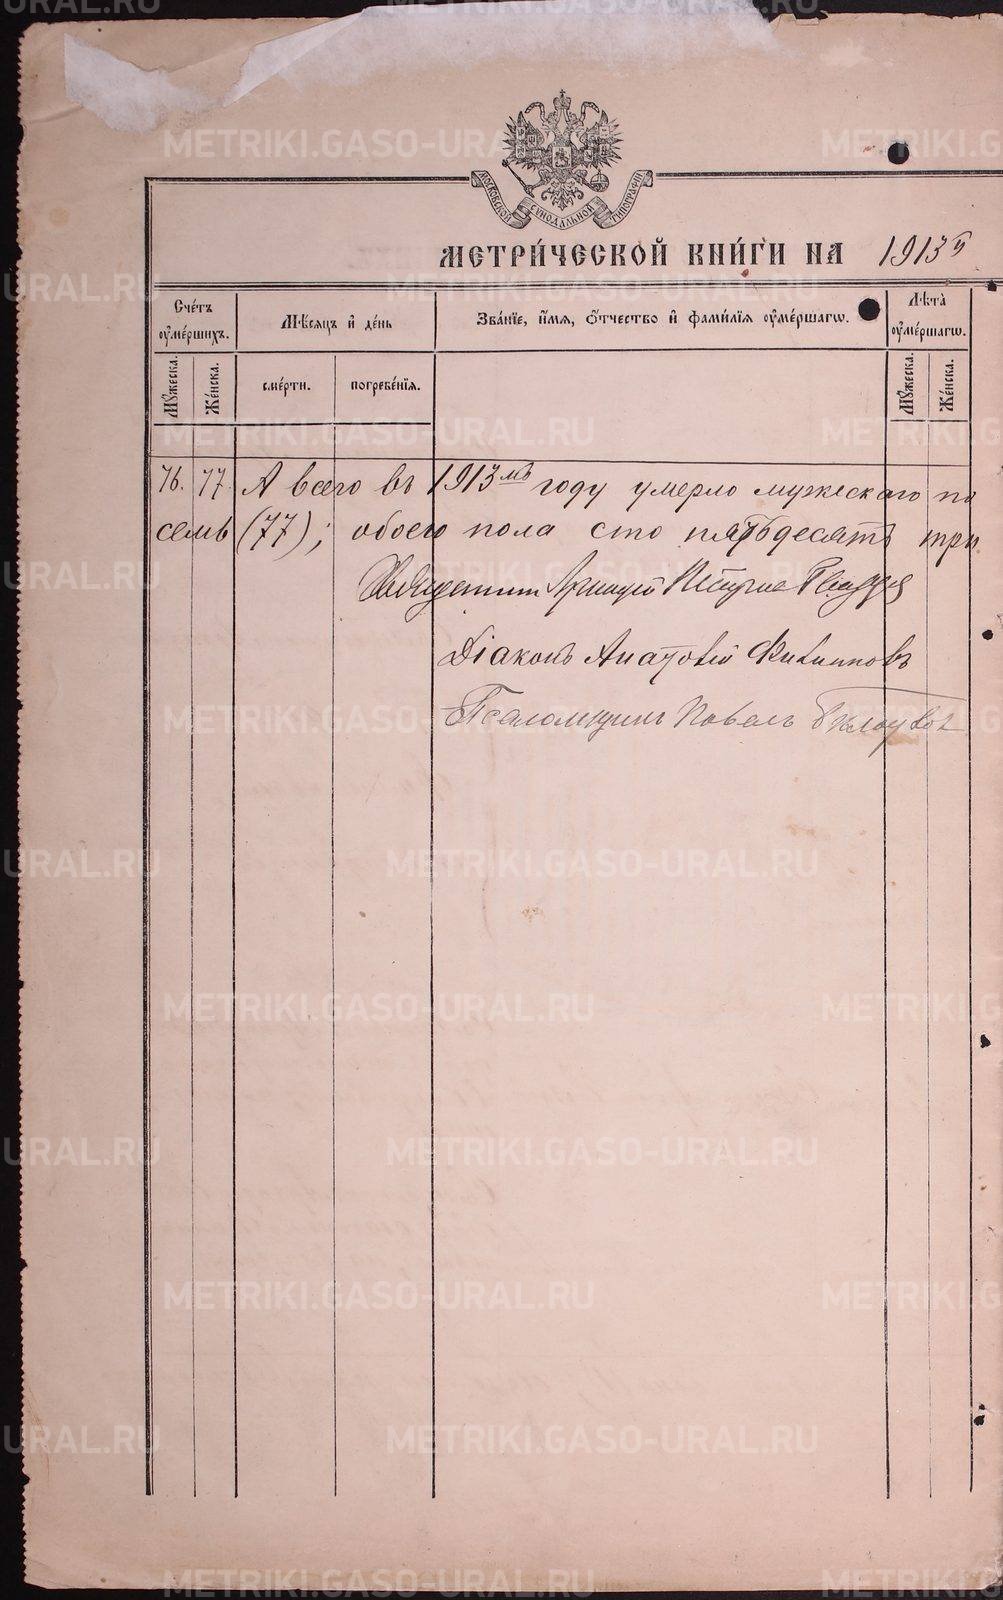 METRIKI.GASO-URAL.RU
МОСКОВСКОЙ СѴНОДАЛЬНОЙ ТИПОГРАФІИ
МЕТРИ́ЧЕСКОЙ КНИ́ГИ НА 1913й
Сче́тъ ᲂу҆ме́ршихъ.
Мѣсяцъ и҆ де́нь
Зва́нїе, и҆́мя, ѻ҆́тчество и҆ фамилїя ᲂу҆ме́ршагѡ.
Лѣта̀ ᲂу҆ме́ршагѡ.
Мꙋ́жеска.
Же́нска.
сме́рти.
погребе́нїѧ.
Мꙋ́жеска.
Же́нска.
76. 77. А всего въ 1913мъ году умерло мужескаго по
семь (77); обоего пола сто пятьдесятъ три
Діаконъ Анатолій Филипповъ
Псаломщикъ Павелъ